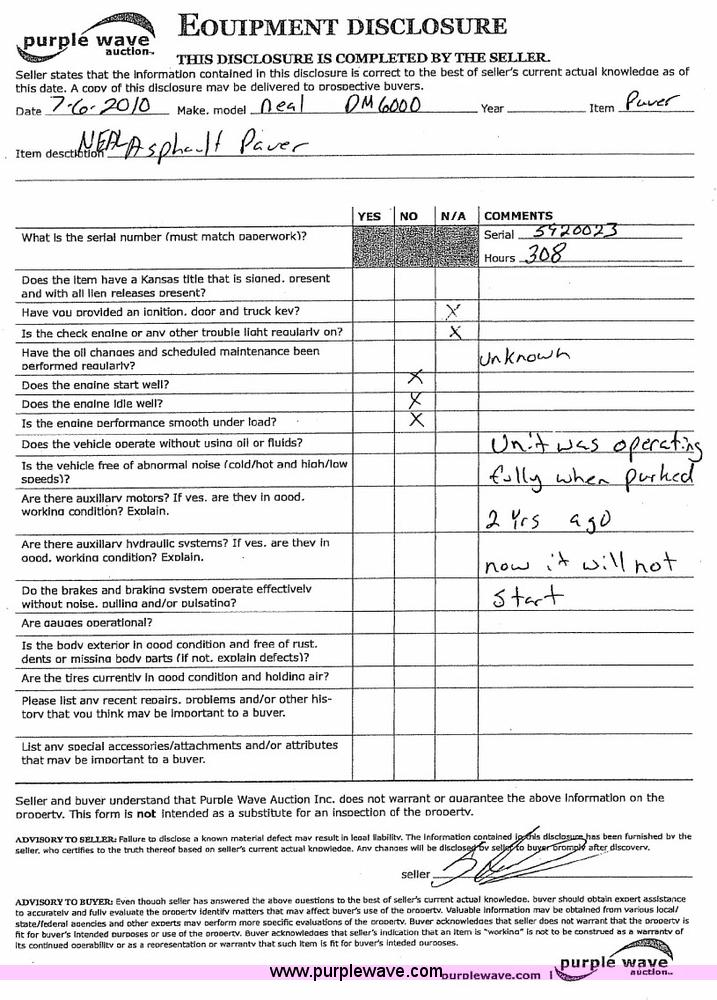 purple wave
auction™
EQUIPMENT DISCLOSURE
THIS DISCLOSURE IS COMPLETED BY THE SELLER.
Seller states that the information contained in this disclosure is correct to the best of seller's current actual knowledge as of
this date. A copy of this disclosure may be delivered to prospective buyers.
Date 7-6-2010 Make, model Neal DM6000 Year Item Paver
Item desctibtion NEAL Asphault Paver
YES NO N/A COMMENTS
What is the serial number (must match paperwork)? Serial 5920023
Hours 308
Does the item have a Kansas title that is signed, present
and with all lien releases present?
Have you provided an ignition, door and truck key? X
Is the check engine or any other trouble light regularly on? X
Have the oil changes and scheduled maintenance been
performed regularly? Unknown
Does the engine start well? X
Does the engine idle well? X
Is the engine performance smooth under load? X
Does the vehicle operate without using oil or fluids? Unit was operating
Is the vehicle free of abnormal noise (cold/hot and high/low
speeds)? fully when parked
Are there auxiliary motors? If yes, are they in good,
working condition? Explain. 2 Yrs ago
Are there auxiliary hydraulic systems? If yes, are they in
good, working condition? Explain. now it will not
Do the brakes and braking system operate effectively
without noise, pulling and/or pulsating? Start
Are gauges operational?
Is the body exterior in good condition and free of rust,
dents or missing body parts (if not, explain defects)?
Are the tires currently in good condition and holding air?
Please list any recent repairs, problems and/or other his-
tory that you think may be important to a buyer.
List any special accessories/attachments and/or attributes
that may be important to a buyer.
Seller and buyer understand that Purple Wave Auction Inc. does not warrant or guarantee the above information on the
property. This form is not intended as a substitute for an inspection of the property.
ADVISORY TO SELLER: Failure to disclose a known material defect may result in legal liability. The information contained in this disclosure has been furnished by the
seller, who certifies to the truth thereof based on seller's current actual knowledge. Any changes will be disclosed by seller to buyer promply after discovery.
seller
ADVISORY TO BUYER: Even though seller has answered the above questions to the best of seller's current actual knowledge, buyer should obtain expert assistance
to accurately and fully evaluate the property identify matters that may affect buyer's use of the property. Valuable information may be obtained from various local/
state/federal agencies and other experts may perform more specific evaluations of the property. Buyer acknowledges that seller does not warrant that the property is
fit for buyer's intended purposes or use of the property. Buyer acknowledges that seller's indication that an item is "working" is not to be construed as a warranty of
its continued operability or as a representation or warranty that such item is fit for buyer's inteded purposes.
www.purplewave.com purplewave.com |
purple wave
auction™